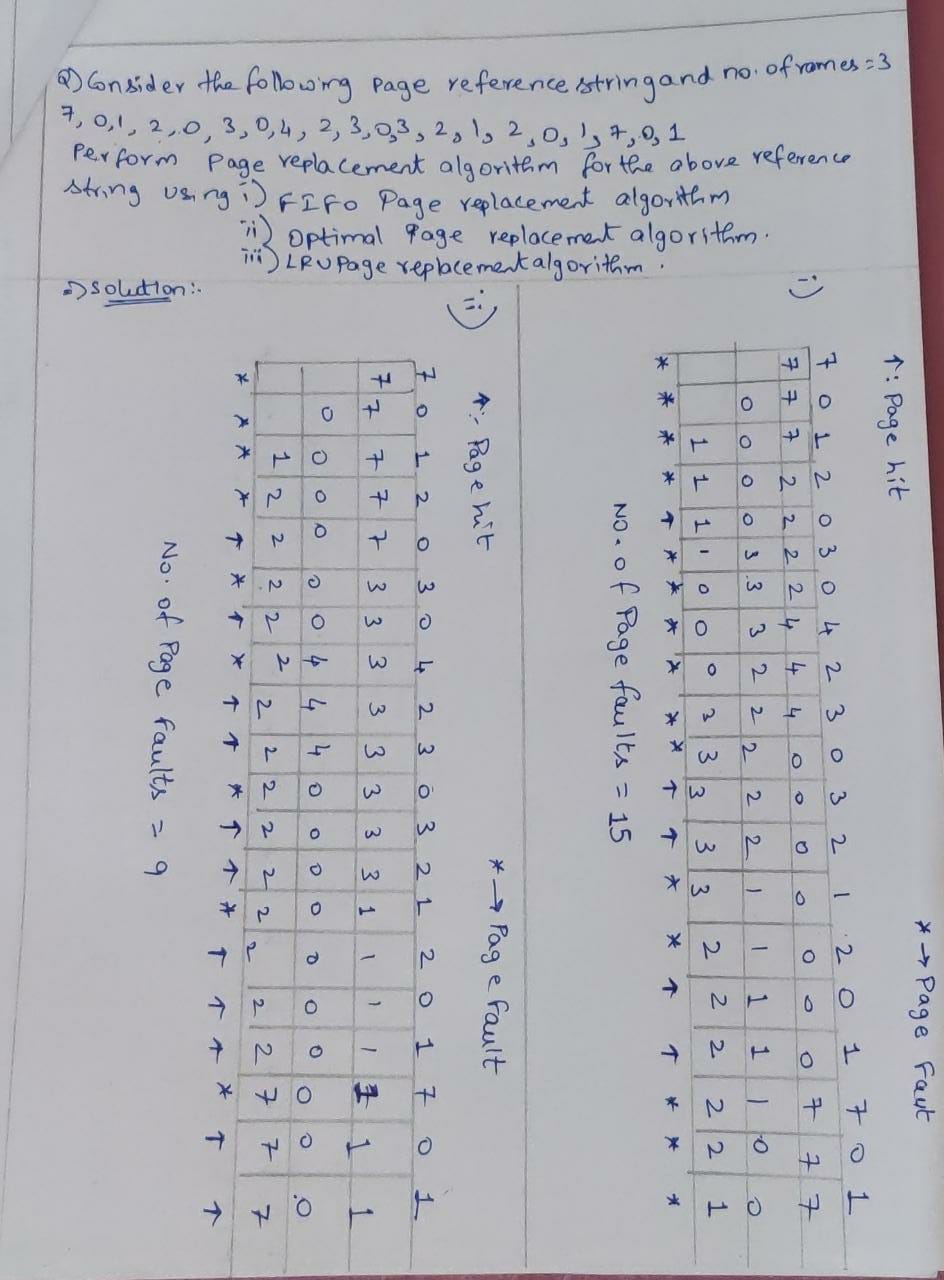 Q) Consider the following page reference string and no. of frames=3
7, 0, 1, 2, 0, 3, 0, 4, 2, 3, 0, 3, 2, 1, 2, 0, 1, 7, 0, 1
Perform Page replacement algorithm for the above reference
string using i) FIFO Page replacement algorithm
ii) Optimal Page replacement algorithm.
iii) LRU Page replacement algorithm.
=) Solution:-
i)
↑: Page hit * → Page Faut
7 0 1 2 0 3 0 4 2 3 0 3 2 1 2 0 1 7 0 1
7 7 7 2 2 2 2 4 4 4 0 0 0 0 0 0 0 7 7 7
0 0 0 0 3 3 3 2 2 2 2 2 1 1 1 1 1 0 0
1 1 1 1 0 0 0 3 3 3 3 3 2 2 2 2 2 1
* * * * ↑ * * * * * * ↑ ↑ * * ↑ ↑ * * *
No. of Page faults = 15
ii)
↑:- Page hit * → Page fault
7 0 1 2 0 3 0 4 2 3 0 3 2 1 2 0 1 7 0 1
7 7 7 7 7 3 3 3 3 3 3 3 3 1 1 1 1 1 1 1
0 0 0 0 0 0 4 4 4 0 0 0 0 0 0 0 0 0 0
1 2 2 2 2 2 2 2 2 2 2 2 2 2 2 7 7 7
* * * * ↑ * ↑ * ↑ ↑ * ↑ ↑ * ↑ ↑ ↑ * ↑ ↑
No. of Page Faults = 9